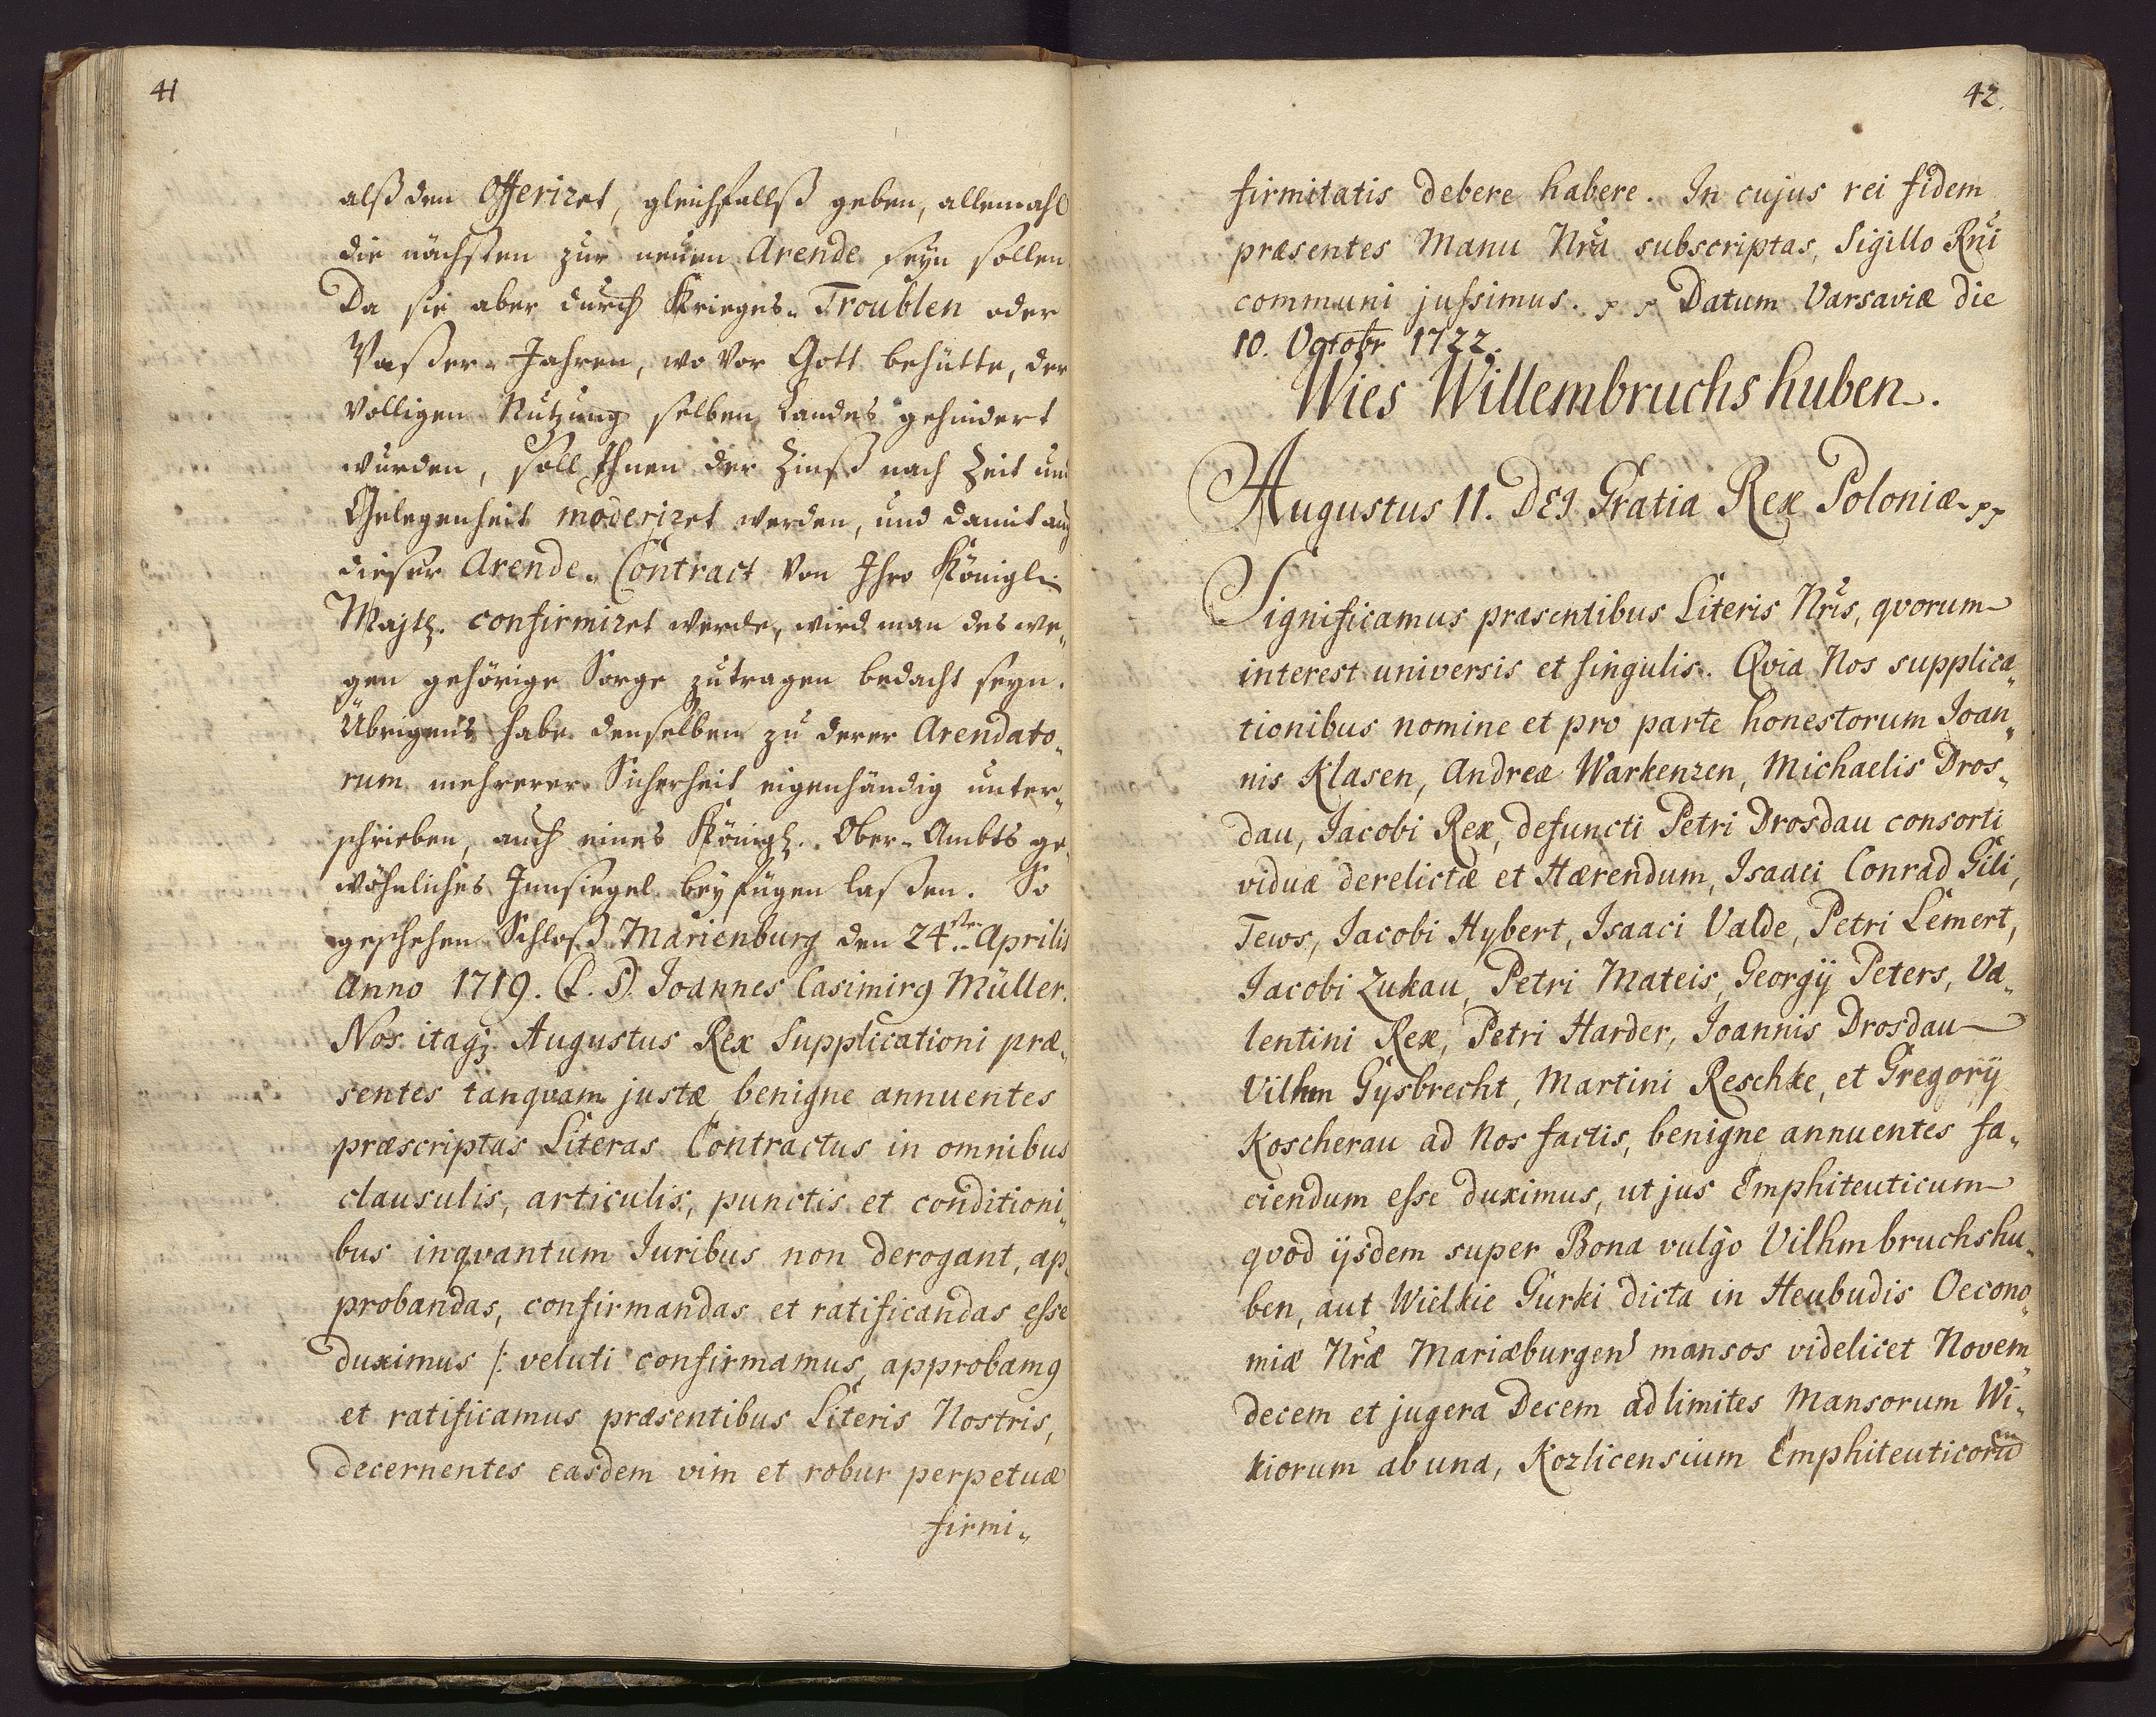 41
alß den Offerizet, gleichfallß geben, allemahl
die nächsten zur neuen Arende seyn sollen.
Da sie aber durch Krieges„ Troublen oder
Waßer„ Jahren, wo vor Gott behütte, der
völligen Nutzung selben Landes gehindert
wurden, soll Ihnen der Zinß nach Zeit und
Gelegenheit moderizet werden, und damit auch
dieser Arende„ Contract von Ihro Königl.
Majtt. confirmizet werde, wird man des we„
gen gehörige Sorge zutragen bedacht seyn.
Übrigens habe denselben zu derer Arendato„
rum mehrerer Sicherheit eigenhändig unter„
schrieben, auch eines Königl. Ober„ Ambts ge„
wöhnliches Innsiegel beyfügen laßen. So
geschehen Schloß Marienburg den 24ste Aprilis
Anno 1719. Joannes Casimirq Müller.
Nos itaqz Augustus Rex Supplicationi præ„
sentes tanqvam justæ benigne annuentes
præscriptas Literas Contractus in omnibus
clausulis, articulis, punctis et conditioni„
bus inqvantum Juribus non derogant, ap„
probandas, confirmandas et ratificandas esse
duximus /: veluti confirmamus, approbamq
et ratificamus præsentibus Literis Nostris,
decernentes easdem vim et robur perpetuæ
firmi„
42.
firmitatis debere habere. In cujus rei fidem
præsentes Manu Nrã subscriptas, Sigillo Rni
communi jussimus. pp Datum Varsaviæ die
10. Octobr 1722.
Wies Willembruchshuben.
Augustus II. DEI Gratia Rex Poloniæ pp
Significamus præsentibus Literis Nris, qvorum
interest universis et singulis. Qvia Nos supplica„
tionibus nomine et pro parte honestorum Joan„
nis Klasen, Andreæ Warkenzen, Michaelis Dros„
dau, Jacobi Rex, defuncti Petri Drosdau consorti
viduæ derelictæ et Hærendum, Isaaci Conrad Gili,
Tews, Jacobi Hybert, Isaaci Valde, Petri Lemert,
Jacobi Zukau, Petri Mateis, Georgij Peters, Va„
lentini Rex, Petri Harder, Joannis Drosdau
Vilhm Gysbrecht, Martini Reschke, et Gregorij
Koscherau ad Nos factis, benigne annuentes fa„
ciendum esse duximus, ut jus Emphiteuticum
qvod ijsdem super Bona vulgo Vilhmbruchshu„
ben, aut Wielkie Gurki dicta in Heubudis Oecono„
miæ Nræ Mariæburgen mansos videlicet Novem
decem et jugera Decem ad limites Mansorum Wi„
kiorum ab una, Kozlicensium Emphiteuticorum